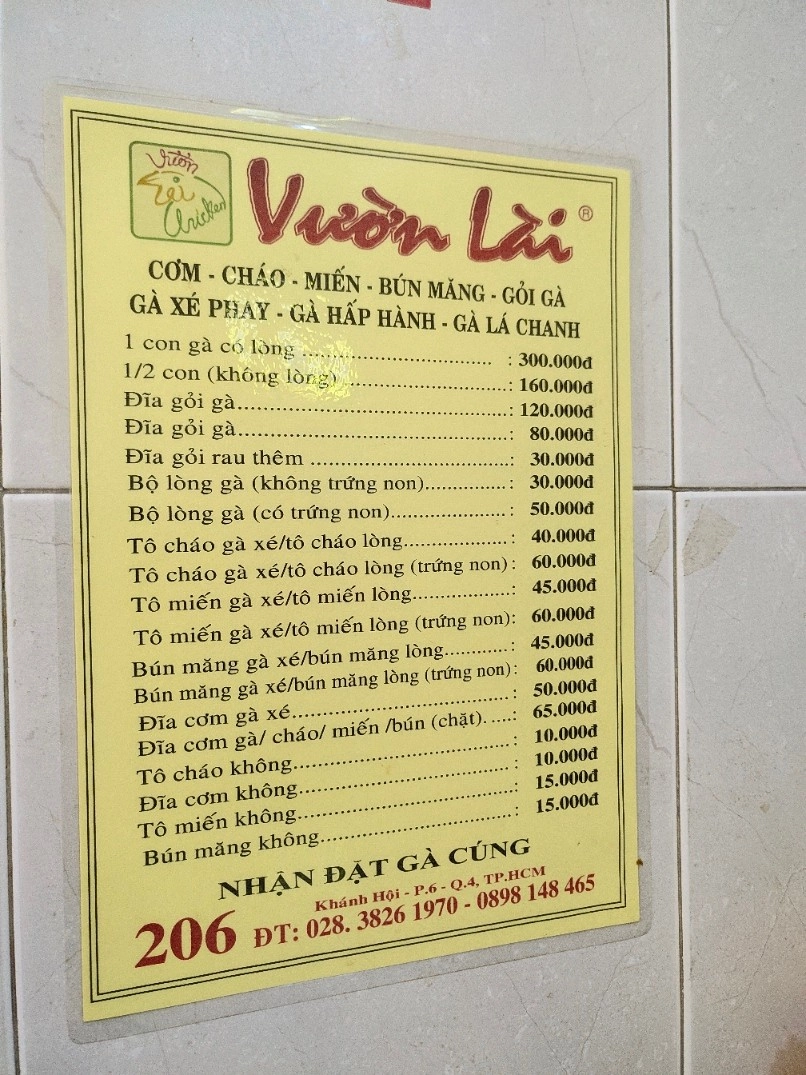 Vườn
Lài
Chicken
Vườn Lài ®
CƠM - CHÁO - MIẾN - BÚN MĂNG - GỎI GÀ
GÀ XÉ PHAY - GÀ HẤP HÀNH - GÀ LÁ CHANH
1 con gà có lòng .............................. : 300.000đ
1/2 con (không lòng) ......................... : 160.000đ
Đĩa gỏi gà........................................... : 120.000đ
Đĩa gỏi gà........................................... : 80.000đ
Đĩa gỏi rau thêm ................................ : 30.000đ
Bộ lòng gà (không trứng non)............. : 30.000đ
Bộ lòng gà (có trứng non)................... : 50.000đ
Tô cháo gà xé/tô cháo lòng................. : 40.000đ
Tô cháo gà xé/tô cháo lòng (trứng non) : 60.000đ
Tô miến gà xé/tô miến lòng................. : 45.000đ
Tô miến gà xé/tô miến lòng (trứng non): 60.000đ
Bún măng gà xé/bún măng lòng........... : 45.000đ
Bún măng gà xé/bún măng lòng (trứng non): 60.000đ
Đĩa cơm gà xé..................................... : 50.000đ
Đĩa cơm gà/ cháo/ miến /bún (chặt). ..... : 65.000đ
Tô cháo không..................................... : 10.000đ
Đĩa cơm không.................................... : 10.000đ
Tô miến không..................................... : 15.000đ
Bún măng không................................. : 15.000đ
NHẬN ĐẶT GÀ CÚNG
206 Khánh Hội - P.6 - Q.4, TP.HCM
ĐT: 028. 3826 1970 - 0898 148 465